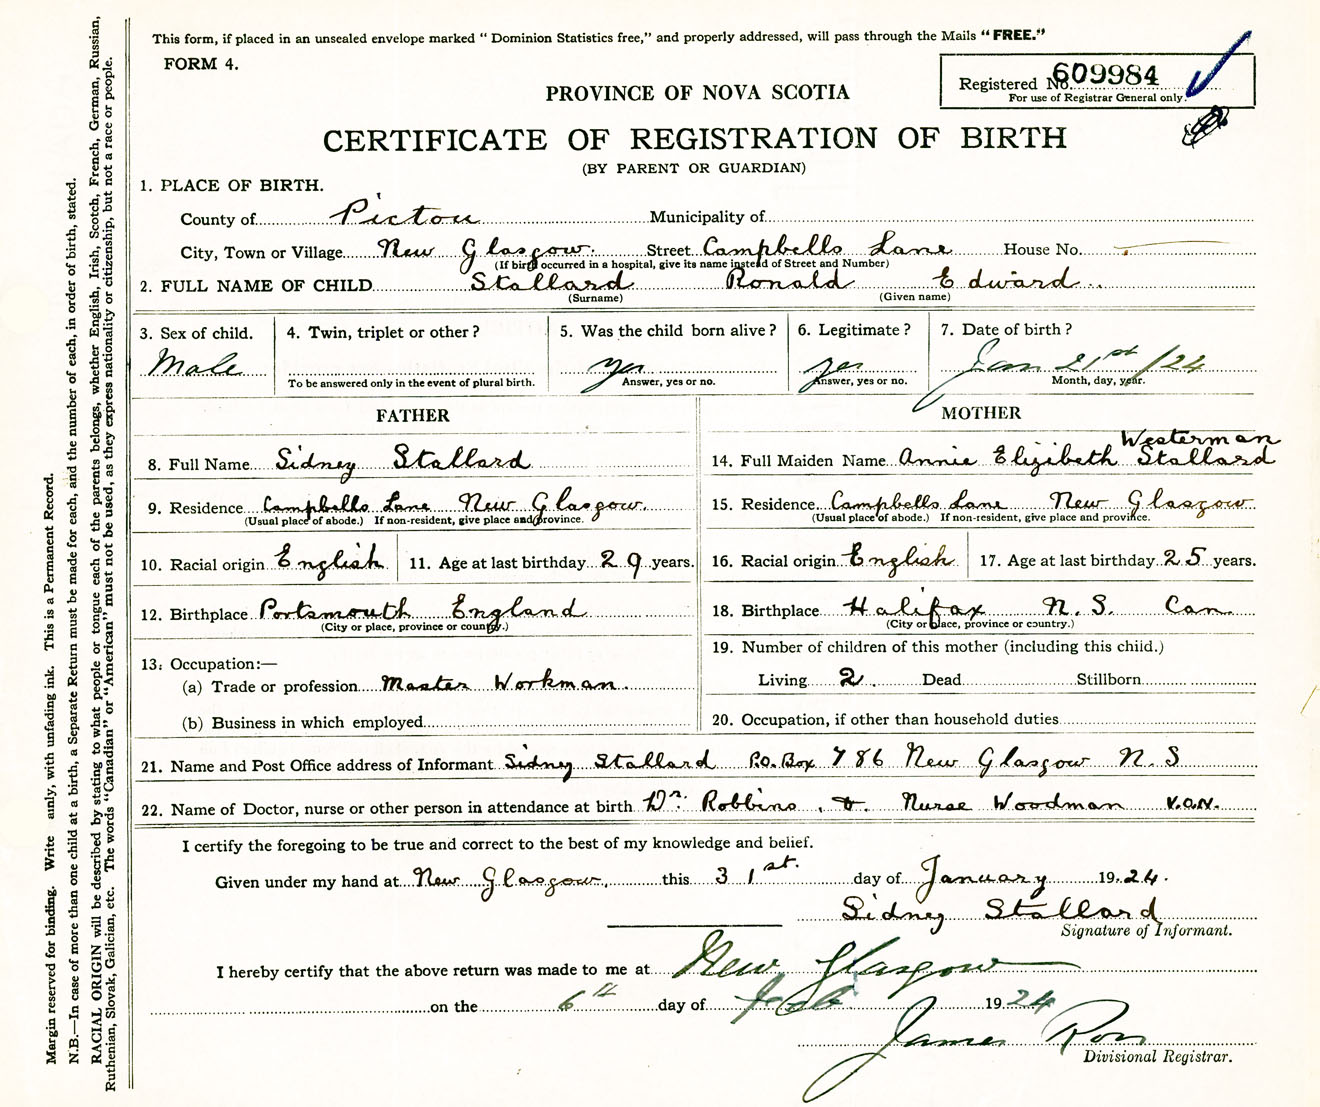 This form, if placed in an unsealed envelope marked “ Dominion Statistics free,” and properly addressed, will pass through the Mails “ FREE.”
FORM 4.
Registered No. 609984
For use of Registrar General only.
PROVINCE OF NOVA SCOTIA
CERTIFICATE OF REGISTRATION OF BIRTH
(BY PARENT OR GUARDIAN)
1. PLACE OF BIRTH.
County of Pictou Municipality of
City, Town or Village New Glasgow. Street Campbells Lane House No.
(If birth occurred in a hospital, give its name instead of Street and Number)
2. FULL NAME OF CHILD Stallard Ronald Edward
(Surname) (Given name)
3. Sex of child. 4. Twin, triplet or other ? 5. Was the child born alive ? 6. Legitimate ? 7. Date of birth ?
Male yes yes Jan 21st /24
To be answered only in the event of plural birth. Answer, yes or no. Answer, yes or no. Month, day, year.
FATHER MOTHER
8. Full Name Sidney Stallard
9. Residence Campbells Lane New Glasgow.
(Usual place of abode.) If non-resident, give place and province.
10. Racial origin English 11. Age at last birthday 29 years.
12. Birthplace Portsmouth England
(City or place, province or country.)
13. Occupation:—
(a) Trade or profession Master Workman.
(b) Business in which employed
Westerman
14. Full Maiden Name Annie Elizibeth Stallard
15. Residence Campbells Lane New Glasgow
(Usual place of abode.) If non-resident, give place and province.
16. Racial origin English 17. Age at last birthday 25 years.
18. Birthplace Halifax N.S. Can.
(City or place, province or country.)
19. Number of children of this mother (including this child.)
Living 2. Dead Stillborn
20. Occupation, if other than household duties
21. Name and Post Office address of Informant Sidney Stallard P.O. Box 786 New Glasgow N.S
22. Name of Doctor, nurse or other person in attendance at birth Dr. Robbins, &. Nurse Woodman V.O.N.
I certify the foregoing to be true and correct to the best of my knowledge and belief.
Given under my hand at New Glasgow, this 31st. day of January 1924.
Sidney Stallard
Signature of Informant.
I hereby certify that the above return was made to me at New Glasgow
on the 6th day of Feb 1924
James Ross
Divisional Registrar.
Margin reserved for binding. Write anly, with unfading ink. This is a Permanent Record.
N.B.—In case of more than one child at a birth, a Separate Return must be made for each, and the number of each, in order of birth, stated.
RACIAL ORIGIN will be described by stating to what people or tongue each of the parents belongs, whether English, Irish, Scotch, French, German, Russian,
Ruthenian, Slovak, Galician, etc. The words “Canadian” or “American” must not be used, as they express nationality or citizenship, but not a race or people.